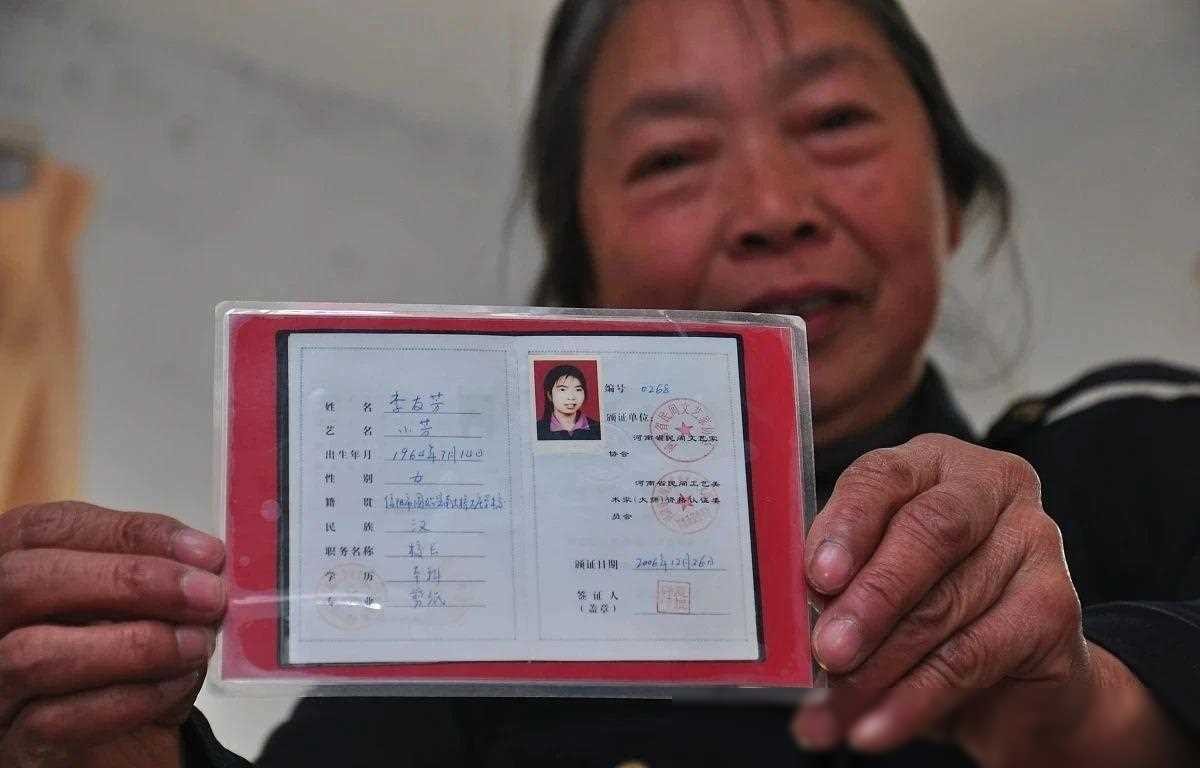 姓 名 李友芳
艺 名 小芳
出生年月 1964年7月14日
性 别 女
籍 贯
民 族 汉
职务名称 校长
学 历 本科
专 业 剪纸
编号 0268
颁证单位
河南省民间文艺家
协会
河南省民间工艺美
术家(大师)资格认证委
员会
颁证日期 2006年12月26日
签 证 人
(盖章)